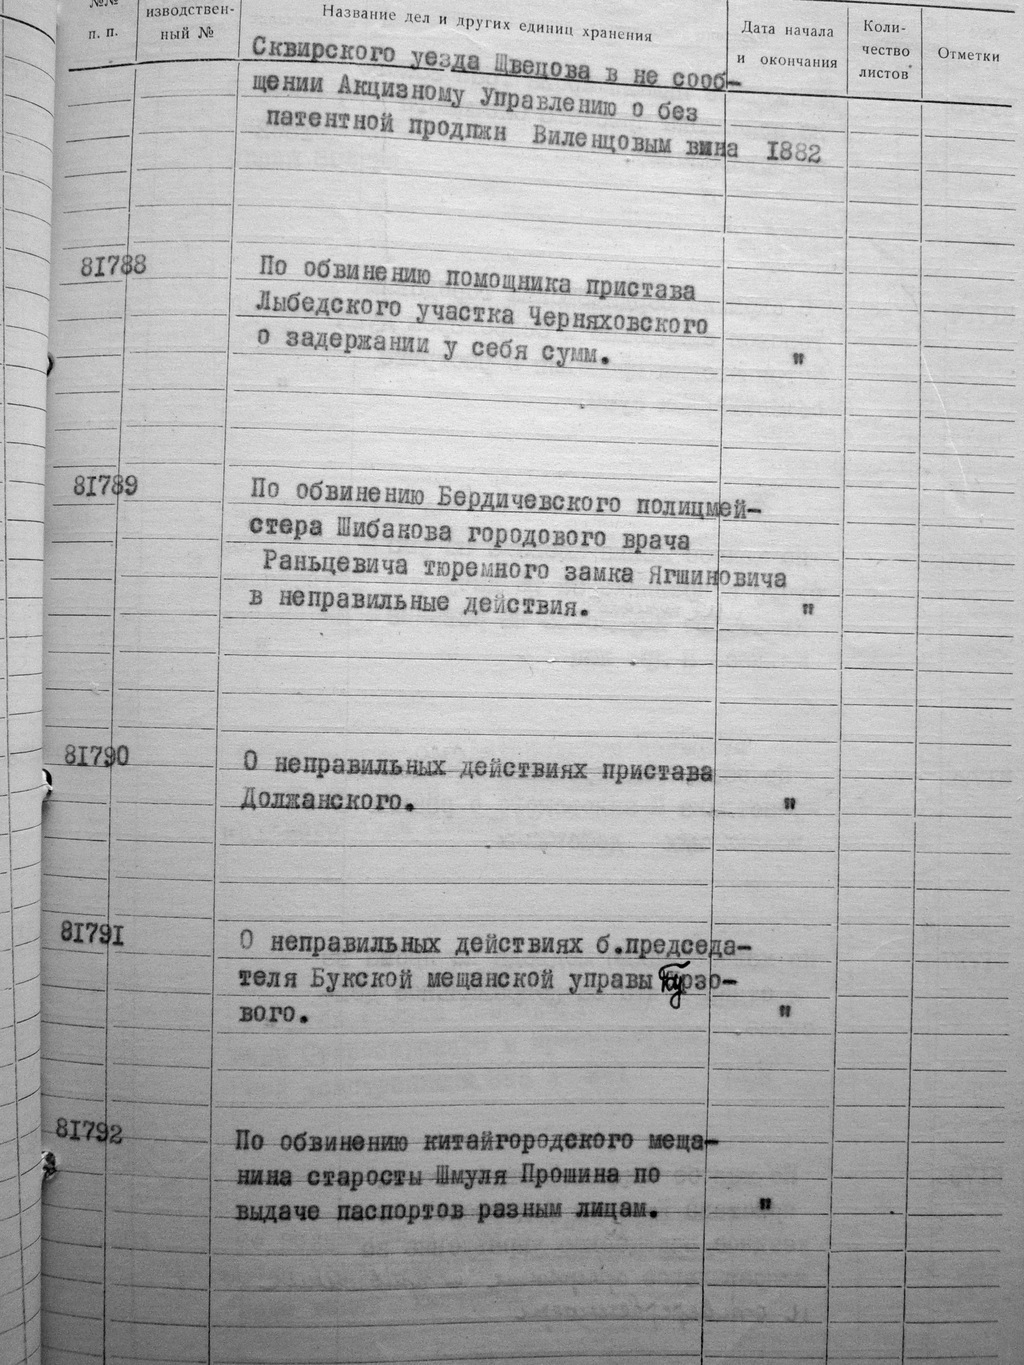 №№ п. п. | изводствен-ный № | Название дел и других единиц хранения | Дата начала и окончания | Коли-чество листов | Отметки
Сквирского уезда Швецова в не сооб-
щении Акцизному Управлению о без
патентной продпжн Виленцовым вина 1882
81788 По обвинению помощника пристава
Лыбедского участка Черняховского
о задержании у себя сумм. "
81789 По обвинению Бердичевского полицмей-
стера Шибакова городового врача
Раньцевича тюремного замка Ягшиновича
в неправильные действия. "
81790 О неправильных действиях пристава
Должанского. "
81791 О неправильных действиях б.председа-
теля Букской мещанской управы
вого. "
81792 По обвинению китайгородского меща-
нина старосты Шмуля Прошина по
выдаче паспортов разным лицам. "